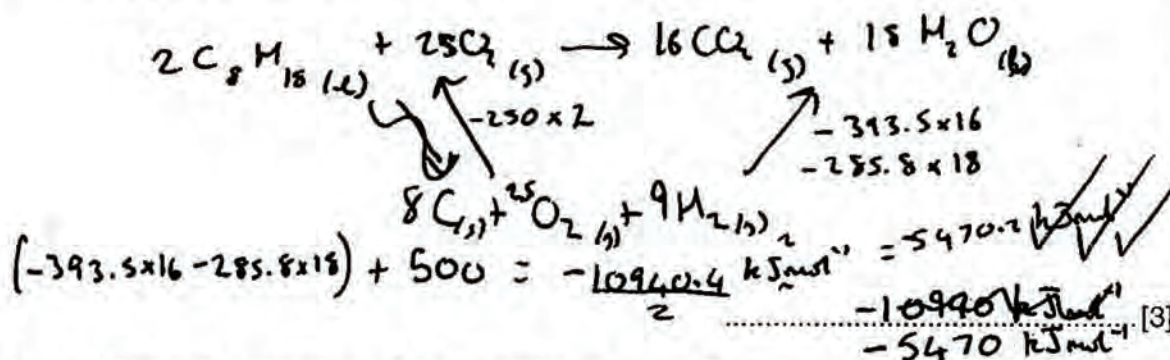 2 C₈H₁₈ (l) + 25O₂ (g) → 16CO₂ (g) + 18 H₂O (l)
-250 × 2
-393.5×16
-285.8 × 18
8 C(s) + 25 O₂ (g) + 9H₂ (g)
(-393.5×16 -285.8×18) + 500 = -10940.4 / 2 kJmol⁻¹ = -5470.2 kJmol⁻¹
-10940 kJmol⁻¹ [3]
-5470 kJmol⁻¹